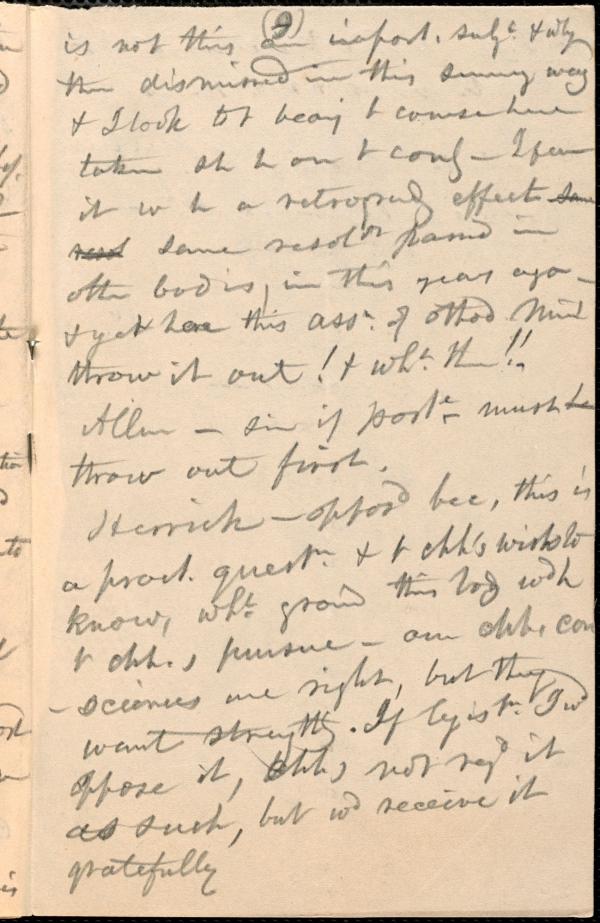 (9)
is not this an import. subjt. & why
then dismissed in this summy way
& I look tot beaig t course here
taken sh h on t cong - I fear
it w h a retrogradg effect - same
resol same resoltn passed in
othr bodies, in this years ago -
& yet here this assn. of othod Min
throw it out! & wht. thn!!
Allen - sir if postd must be
throw out first.
Herrick - opposd bec, this is
a pract. questn & t chh's wish to
know, wht grond this body wd h
t chh.s pursue - our chhs con
- sciences are right, but they
want strength. If legistn I wd
oppose it, chhs not regd it
as such, but wd receive it
gratefully